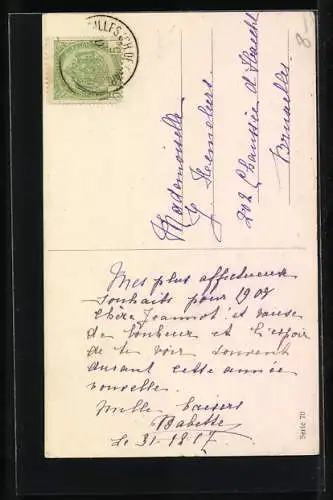 Mademoiselle
202 Chaussée d'
Bruxelles
Mes plus affectueux
souhaits pour 1908
chère Jeannot et
de bonheur et l'espoir
de te voir souvent
durant cette année
nouvelle.
Mille baisers
Babette
Le 31-12-07
Serie 70
8